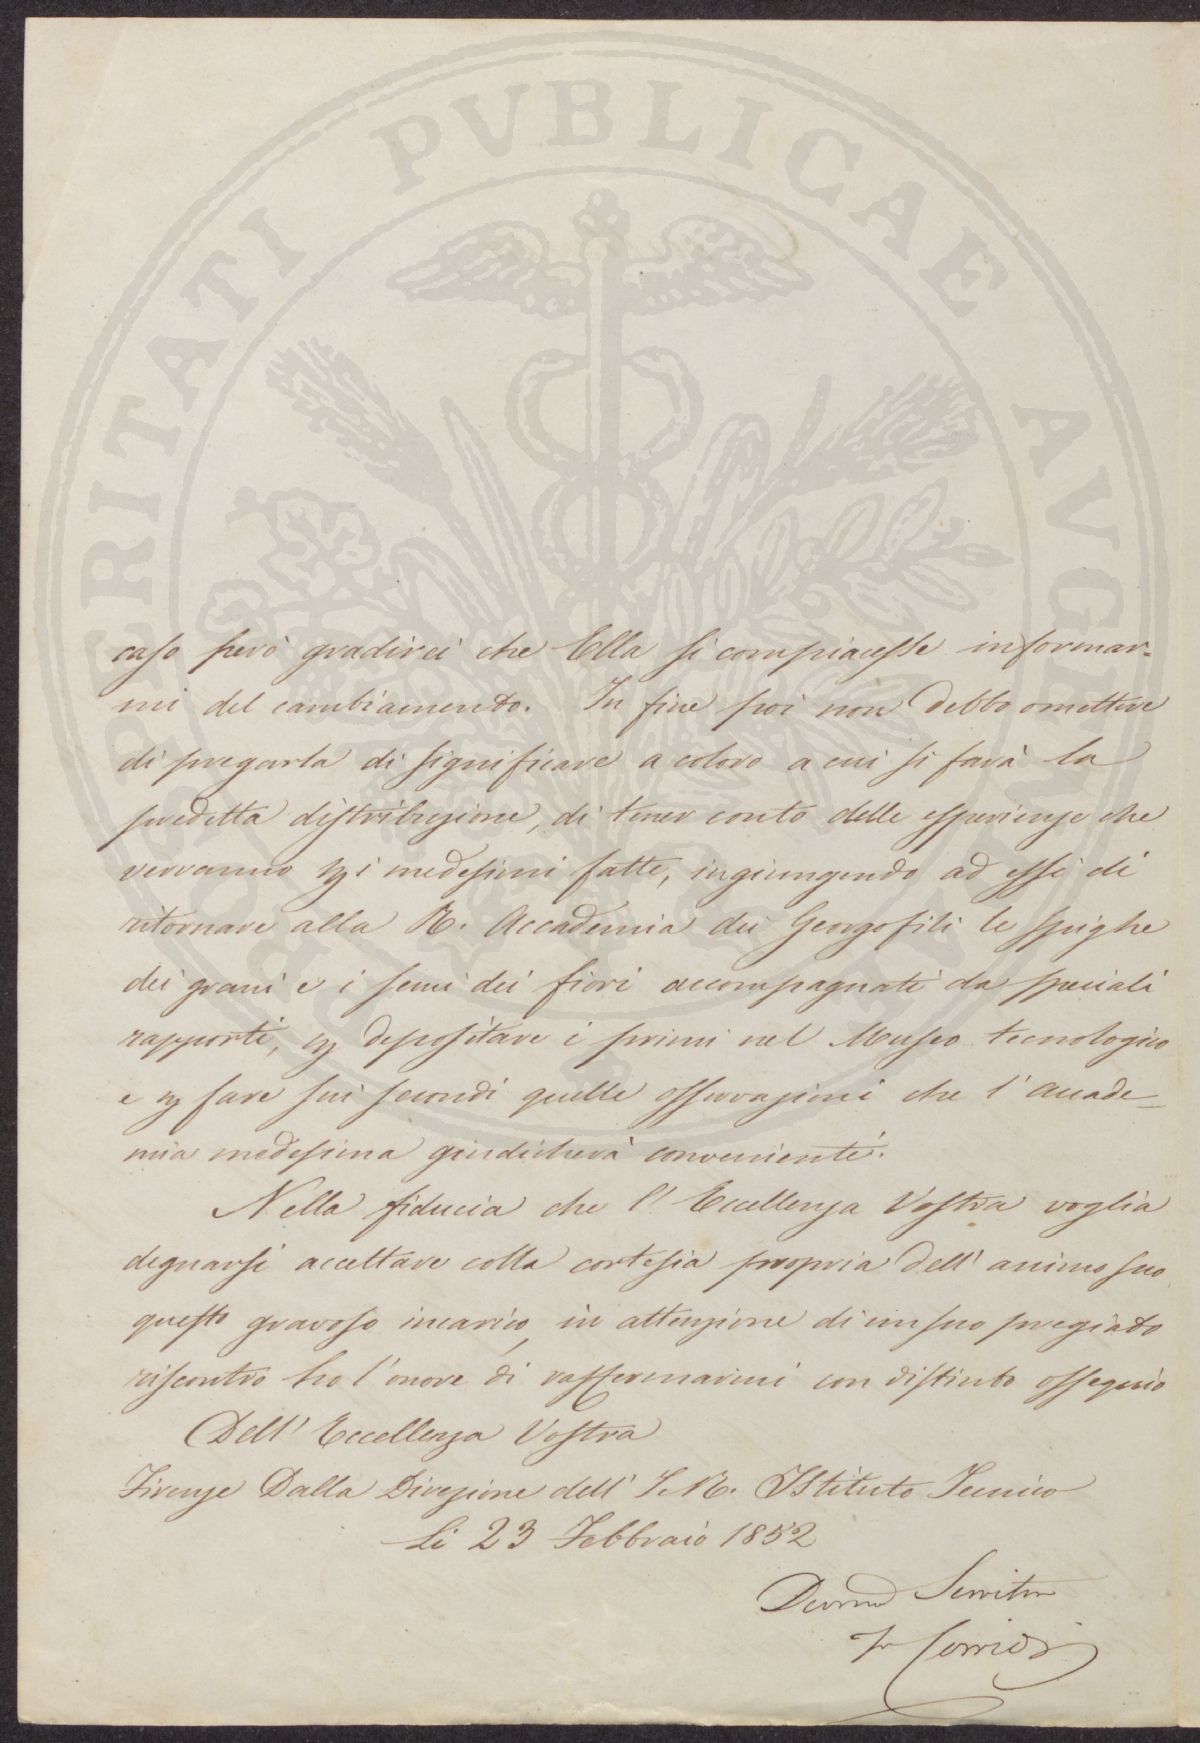 PROSPERITATI PVBLICAE AVGENDAE
caso però gradirei che Ella si compiacesse informar=
mi del cambiamento. In fine poi non debbo omettere
di pregarla di significare a coloro a cui si farà la
predetta distribuzione, di tener conto delle esperienze che
verranno per i medesimi fatte, ingiungendo ad essi di
ritornare alla R. Accademia dei Georgofili le spighe
dei grani e i semi dei fiori accompagnati da speciali
rapporti, per depositare i primi nel Museo tecnologico
e per fare sui secondi quelle osservazioni che l'accade=
mia medesima giudicherà convenienti.
Nella fiducia che l'Eccellenza Vostra voglia
degnarsi accettare colla cortesia propria dell'animo suo
questo gravoso incarico, in attenzione di un suo pregiato
riscontro ho l'onore di raffermarmi con distinto ossequio
Dell'Eccellenza Vostra
Firenze Dalla Direzione dell' I. R. Istituto Tecnico
Li 23 Febbraio 1852
Servitore
Corridi